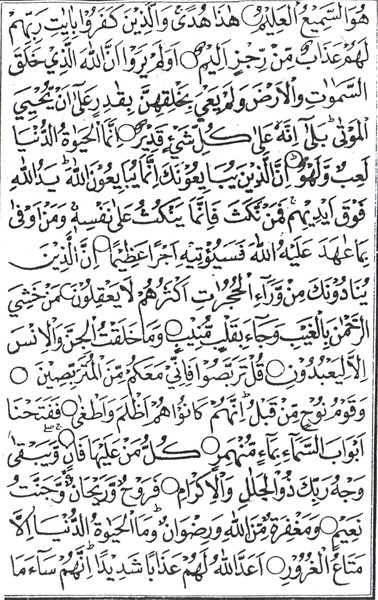 هُوَ السَّمِيعُ الْعَلِيمُ ○ هٰذَا هُدًى وَالَّذِينَ كَفَرُوا بِاٰيٰتِ رَبِّهِمْ
لَهُمْ عَذَابٌ مِّنْ رِّجْزٍ اَلِيمٌ ○ اَوَلَمْ يَرَوْا اَنَّ اللّٰهَ الَّذِي خَلَقَ
السَّمٰوٰتِ وَالْاَرْضَ وَلَمْ يَعْيَ بِخَلْقِهِنَّ بِقٰدِرٍ عَلٰى اَنْ يُّحْيِيَ
الْمَوْتٰى بَلٰى اِنَّهُ عَلٰى كُلِّ شَيْءٍ قَدِيْرٌ ○ اِنَّمَا الْحَيٰوةُ الدُّنْيَا
لَعِبٌ وَّلَهْوٌ ○ اِنَّ الَّذِيْنَ يُبَايِعُوْنَكَ اِنَّمَا يُبَايِعُوْنَ اللّٰهَ يَدُ اللّٰهِ
فَوْقَ اَيْدِيْهِمْ فَمَنْ نَّكَثَ فَاِنَّمَا يَنْكُثُ عَلٰى نَفْسِهٖ وَمَنْ اَوْفٰى
بِمَا عٰهَدَ عَلَيْهُ اللّٰهَ فَسَيُؤْتِيْهِ اَجْرًا عَظِيْمًا ○ اِنَّ الَّذِيْنَ
يُنَادُوْنَكَ مِنْ وَّرَآءِ الْحُجُرٰتِ اَكْثَرُهُمْ لَا يَعْقِلُوْنَ ○ مَنْ خَشِيَ
الرَّحْمٰنَ بِالْغَيْبِ وَجَآءَ بِقَلْبٍ مُّنِيْبٍ ○ وَمَا خَلَقْتُ الْجِنَّ وَالْاِنْسَ
اِلَّا لِيَعْبُدُوْنِ ○ قُلْ تَرَبَّصُوْا فَاِنِّيْ مَعَكُمْ مِّنَ الْمُتَرَبِّصِيْنَ ○
وَقَوْمَ نُوْحٍ مِّنْ قَبْلُ اِنَّهُمْ كَانُوْا هُمْ اَظْلَمَ وَاَطْغٰى ○ فَفَتَحْنَا
اَبْوَابَ السَّمَآءِ بِمَآءٍ مُّنْهَمِرٍ ○ كُلُّ مَنْ عَلَيْهَا فَانٍ ○ وَّيَبْقٰى
وَجْهُ رَبِّكَ ذُو الْجَلٰلِ وَالْاِكْرَامِ ○ فَرَوْحٌ وَّرَيْحَانٌ وَّجَنَّتُ
نَعِيْمٍ ○ وَمَغْفِرَةٌ مِّنَ اللّٰهِ وَرِضْوَانٌ وَمَا الْحَيٰوةُ الدُّنْيَا اِلَّا
مَتَاعُ الْغُرُوْرِ ○ اَعَدَّ اللّٰهُ لَهُمْ عَذَابًا شَدِيْدًا اِنَّهُمْ سَآءَ مَا